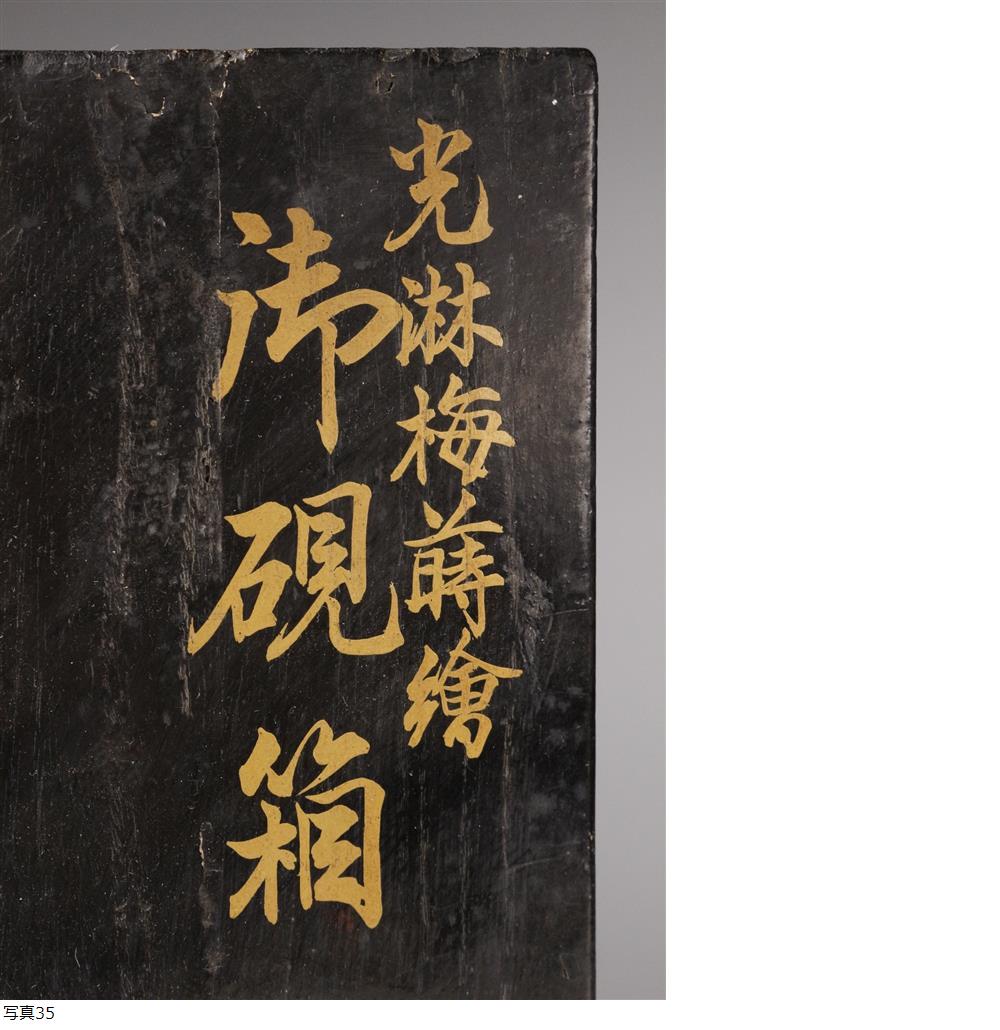 光淋梅蒔繪
御硯箱
写真35